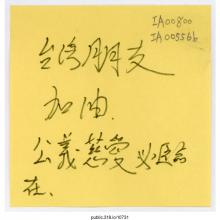 IA00800
IA00556b
台湾朋友
加油.
公義慈愛必返回
在.
public.318.io/10731